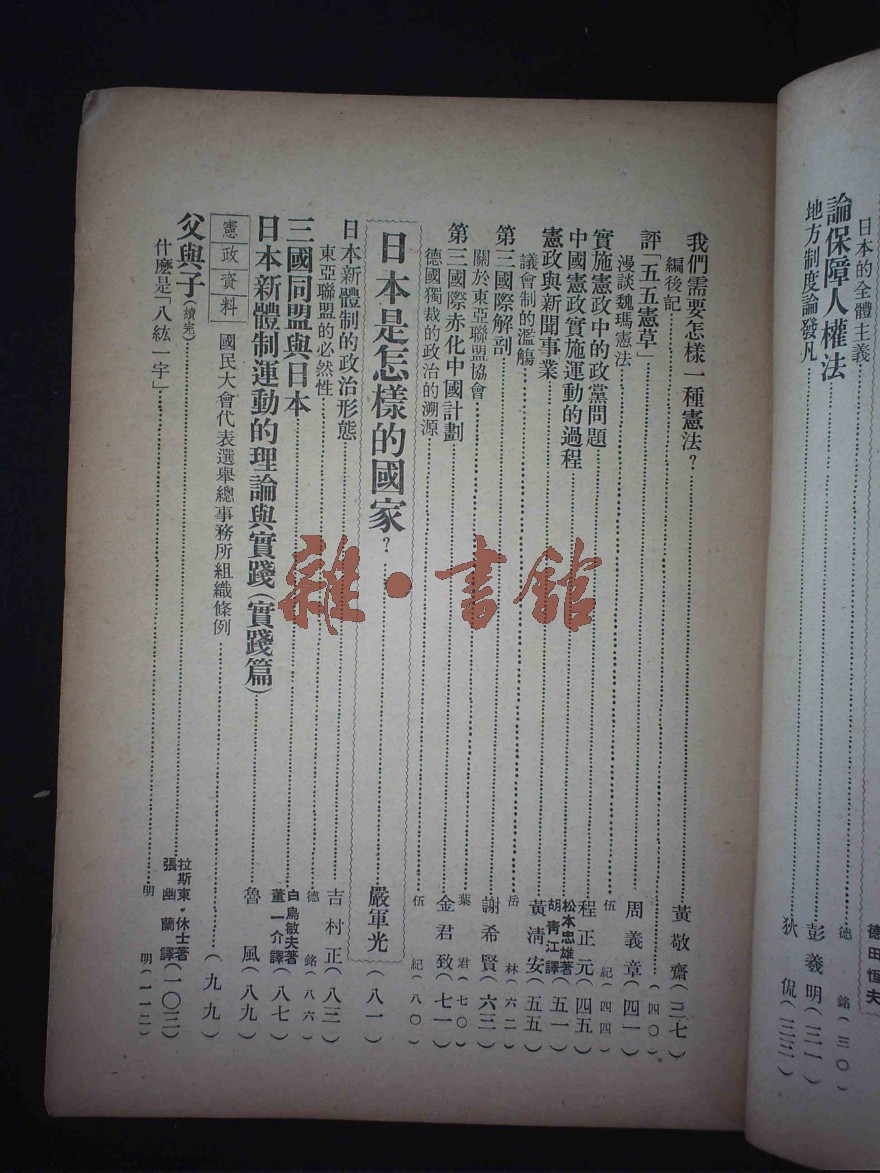 德田恆夫
日本的全體主義 德銘（三〇）
論保障人權法 彭羲明（三一）
地方制度論發凡 狄侃（三三）
我們需要怎樣一種憲法？ 黃敬齋（三七）
編後記（四〇）
評「五五憲草」 周義章（四一）
漫談魏瑪憲法 伍紀（四四）
實施憲政中的政黨問題 程正元（四五）
中國憲政實施運動的過程 松本忠雄著 胡青江譯（五一）
憲政與新聞事業 黃清安（五五）
議會制的濫觴 岳林（六二）
第三國際解剖 謝希賢（六三）
關於東亞聯盟協會 葉君（七〇）
第三國際赤化中國計劃 金君致（七一）
德國獨裁的政治的溯源 伍紀（八〇）
日本是怎樣的國家？ 嚴軍光（八一）
日本新體制的政治形態 吉村正（八三）
東亞聯盟的必然性 德銘（八六）
三國同盟與日本 白鳥敏夫著 董一介譯（八七）
日本新體制運動的理論與實踐（實踐篇） 魯風（八九）
憲政資料 國民大會代表選舉總事務所組織條例（九九）
父與子（續完） 拉斯東・休士著 張幽蘭譯（一〇三）
什麼是「八紘一宇」 明明（一一二）
雜・書館